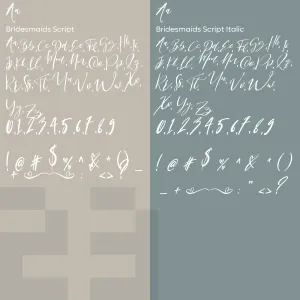 Aa
Bridesmaids Script
Aa, Bb, Cc, Dd, Ee, Ff, Gg, Hh, Ii,
Jj, Kk, Ll, Mm, Nn, Oo, Pp, Qq,
Rr, Ss, Tt, Uu, Vv, Ww, Xx,
Yy, Zz
0,1,2,3,4,5,6,7,8,9
! @ # $ % ^ & * () _
+ { } : " < > ?
Aa
Bridesmaids Script Italic
Aa, Bb, Cc, Dd, Ee, Ff, Gg, Hh, Ii,
Jj, Kk, Ll, Mm, Nn, Oo, Pp, Qq,
Rr, Ss, Tt, Uu, Vv, Ww,
Xx, Yy, Zz
0,1,2,3,4,5,6,7,8,9
! @ # $ % ^ & * ()
_ + { } : " < > ?